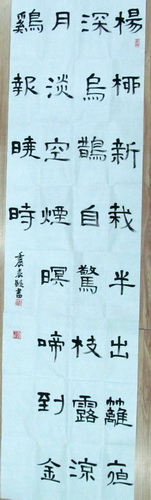 楊柳新栽半出籬夜
深烏鵲自驚枝露涼
月淡空煙暝啼到金
鷄報曉時